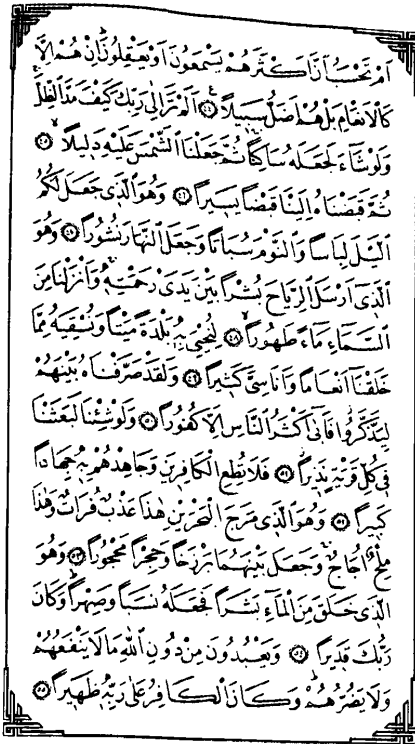 اَمْ تَحْسَبُ اَنَّ اَكْثَرَهُمْ يَسْمَعُونَ اَوْ يَعْقِلُونَۜ اِنْ هُمْ اِلَّا
كَالْاَنْعَامِ بَلْ هُمْ اَضَلُّ سَبِيلًا ﴿٤٤﴾ اَلَمْ تَرَ اِلٰى رَبِّكَ كَيْفَ مَدَّ الظِّلَّۚ
وَلَوْ شَٓاءَ لَجَعَلَهُ سَاكِنًاۚ ثُمَّ جَعَلْنَا الشَّمْسَ عَلَيْهِ دَلِيلًا ﴿٤٥﴾
ثُمَّ قَبَضْنَاهُ اِلَيْنَا قَبْضًا يَسِيرًا ﴿٤٦﴾ وَهُوَ الَّذِي جَعَلَ لَكُمُ
الَّيْلَ لِبَاسًا وَالنَّوْمَ سُبَاتًا وَجَعَلَ النَّهَارَ نُشُورًا ﴿٤٧﴾ وَهُوَ
الَّذِٓي اَرْسَلَ الرِّيَاحَ بُشْرًا بَيْنَ يَدَيْ رَحْمَتِهِۚ وَاَنْزَلْنَا مِنَ
السَّمَٓاءِ مَٓاءً طَهُورًا ﴿٤٨﴾ لِنُحْيِيَ بِهِ بَلْدَةً مَيْتًا وَنُسْقِيَهُ مِمَّا
خَلَقْنَٓا اَنْعَامًا وَاَنَاسِيَّ كَثِيرًا ﴿٤٩﴾ وَلَقَدْ صَرَّفْنَاهُ بَيْنَهُمْ
لِيَذَّكَّرُواۘ فَاَبٰٓى اَكْثَرُ النَّاسِ اِلَّا كُفُورًا ﴿٥٠﴾ وَلَوْ شِئْنَا لَبَعَثْنَا
فِي كُلِّ قَرْيَةٍ نَذِيرًا ﴿٥١﴾ فَلَا تُطِعِ الْكَافِرِينَ وَجَاهِدْهُمْ بِهِ جِهَادًا
كَبِيرًا ﴿٥٢﴾ وَهُوَ الَّذِي مَرَجَ الْبَحْرَيْنِ هٰذَا عَذْبٌ فُرَاتٌ وَهٰذَا
مِلْحٌ اُجَاجٌۚ وَجَعَلَ بَيْنَهُمَا بَرْزَخًا وَحِجْرًا مَحْجُورًا ﴿٥٣﴾ وَهُوَ
الَّذِي خَلَقَ مِنَ الْمَٓاءِ بَشَرًا فَجَعَلَهُ نَسَبًا وَصِهْرًاۜ وَكَانَ
رَبُّكَ قَدِيرًا ﴿٥٤﴾ وَيَعْبُدُونَ مِنْ دُونِ اللّٰهِ مَا لَا يَنْفَعُهُمْ
وَلَا يَضُرُّهُمْۜ وَكَانَ الْكَافِرُ عَلٰى رَبِّهِ ظَهِيرًا ﴿٥٥﴾